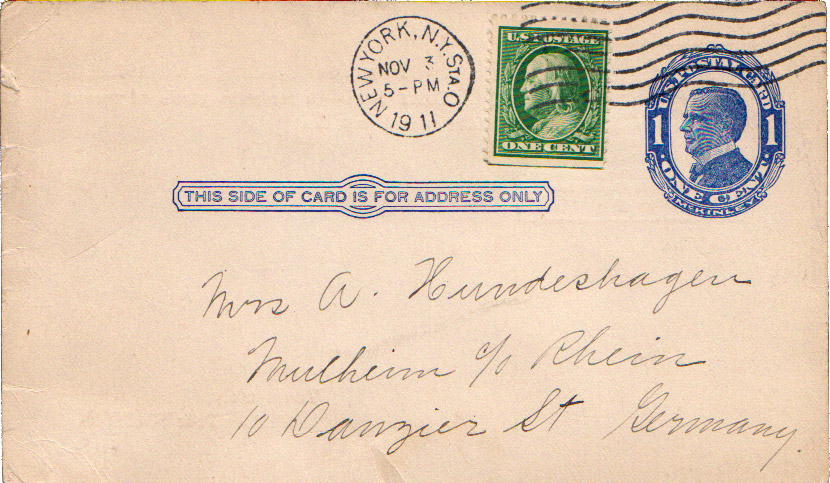 NEW YORK, N.Y. STA. O
NOV 3
5-PM
1911
U.S. POSTAGE
ONE CENT
U.S. POSTAL CARD
1 1
ONE CENT
McKINLEY
THIS SIDE OF CARD IS FOR ADDRESS ONLY
Mrs A. Hundeshagen
Mulheim c/o Rhein
10 Danzier St Germany.